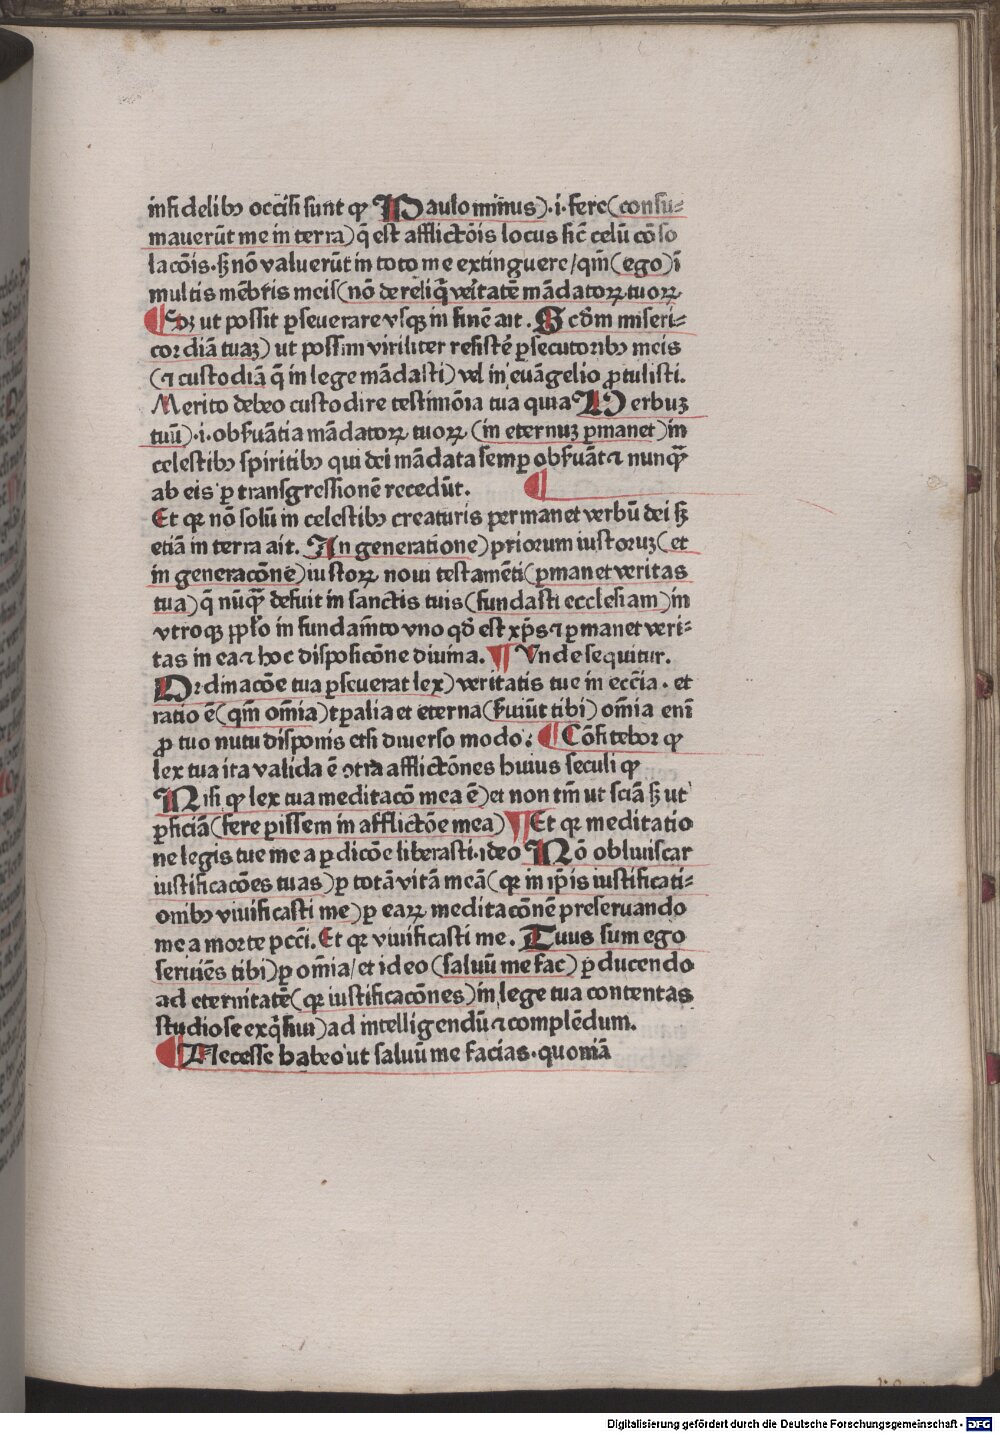 infidelibꝰ occisi sunt qꝛ Paulo minus).i. fere(consu⸗
mauerūt me in terra)q̄ est afflictōis locus sic̄ celū cōso
lacōis.sꝫ nō valuerūt in toto me extinguere/qm̄(ego)ī
multis mēbris meis(nō dereliq̄ veritatē mādatoꝝ tuoꝝ
¶ Sꝫ ut possit ꝑseuerare vsqꝫ in finē ait. Scdm̄ miseri⸗
cordiā tuaꝫ) ut possim viriliter resistē ꝑsecutoribꝰ meis
(⁊ custodiā q̄ in lege mādasti) vel in euāgelio ꝓtulisti.
Merito debeo custodire testimōia tua quia Verbuꝫ
tuū).i.obẜuātia mādatoꝝ tuoꝝ (in eternuꝫ ꝑmanet)in
celestibꝰ spiritibꝰ qui dei mādata semꝑ obẜuāt ⁊ nunqꝫ̄
ab eis ꝑ transgressionē recedūt. ¶
Et qꝛ nō solū in celestibꝰ creaturis permanet verbū dei sꝫ
etiā in terra ait. In generatione)priorum iustoruꝫ(et
in generacōne)iustoꝝ noui testamēti(ꝑmanet veritas
tua)q̄ nūqꝫ̄ defuit in sanctis tuis(fundasti ecclesiam)in
vtroqꝫ ppl̄o in fundam̄to vno qd̄ est xp̄s ⁊ ꝑmanet veri⸗
tas in ea ⁊ hoc disposicōne diuina. ¶ Vnde sequitur.
Ordinacōe tua ꝑseuerat lex) veritatis tue in ecc̄ia. et
ratio ē(qm̄ om̄ia)tꝑalia et eterna(ẜuiūt tibi) om̄ia enī
ꝓ tuo nutu disponis etsi diuerso modo: ¶ Cōfitebor qꝛ
lex tua ita valida ē ↄtra afflictōnes huius seculi qꝛ
Nisi qꝛ lex tua meditacō mea ē)et non tm̄ ut sciā sꝫ ut
ꝑficiā(fere ꝑissem in afflictōe mea) ¶ Et qꝛ meditatio
ne legis tue me a ꝑdicōe liberasti.ideo Nō obliuiscar
iustificacōes tuas)ꝑ totā vitā meā(qꝛ in ip̄is iustificati⸗
onibꝰ viuificasti me)ꝑ eaꝝ meditacōnē preseruando
me a morte pcc̄i. Et qꝛ viuificasti me. Tuus sum ego
seruiēs tibi)ꝑ om̄ia/et ideo(saluū me fac) ꝑducendo
ad eternitatē(qꝛ iustificacōnes)in lege tua contentas
studiose exq̄siui)ad intelligendū ⁊ complēdum.
¶ Necesse habeo ut saluū me facias.quoniā
Digitalisierung gefördert durch die Deutsche Forschungsgemeinschaft - DFG